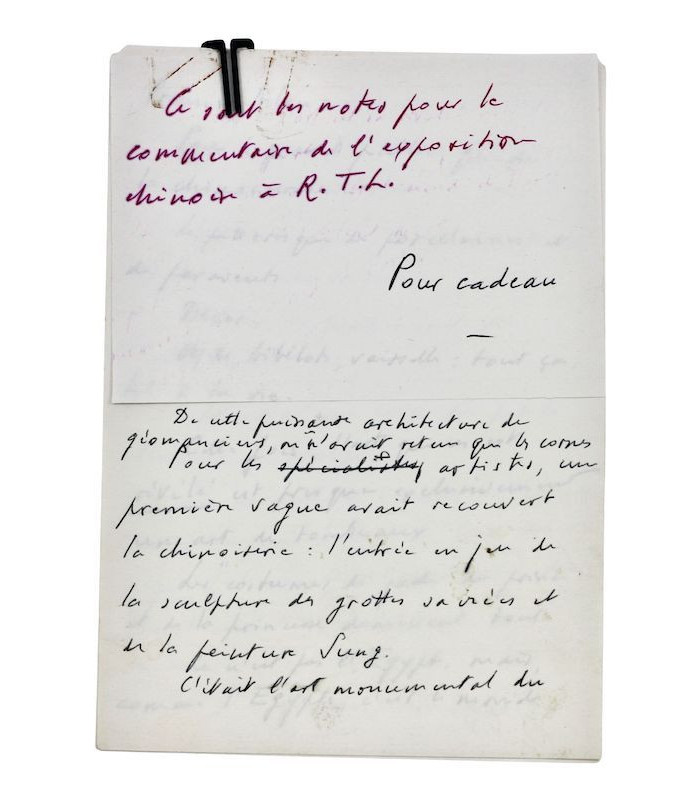 Ce sont les notes pour le
commentaire de l'exposition
chinoise à R.T.L.
Pour cadeau
—
De cette puissante architecture de
géomanciens, on n'avait retenu que les cornes
Pour les spécialistes artistes, une
première vague avait recouvert
la chinoiserie : l'entrée en jeu de
la sculpture des grottes sacrées et
de la peinture Sung.
C'était l'art monumental du